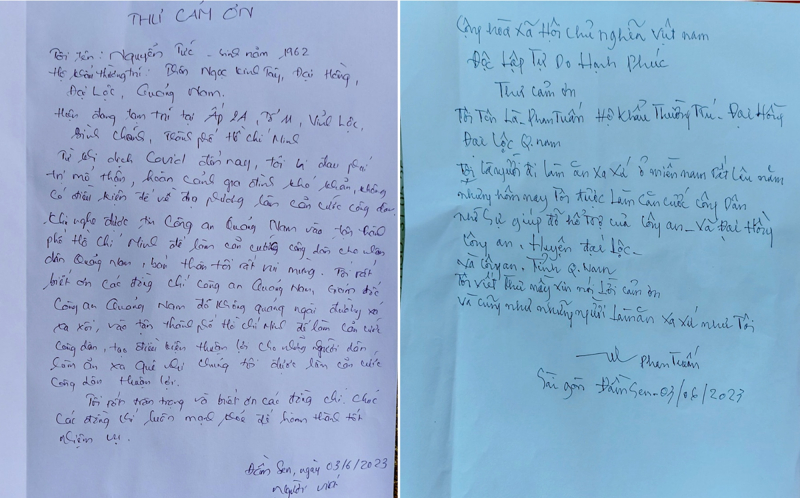 THƯ CẢM ƠN
Tôi tên: Nguyễn Tức - sinh năm 1962
Hộ khẩu thường trú: Thôn Ngọc Kinh Tây, Đại Hồng,
Đại Lộc, Quảng Nam.
Hiện đang tạm trú tại Ấp 2A, Tổ 11, Vĩnh Lộc,
Bình Chánh, Thành phố Hồ Chí Minh
Từ khi dịch Covid đến nay, tôi bị đau phải
trị mổ thận, hoàn cảnh gia đình khó khăn, không
có điều kiện để về địa phương làm căn cước công dân.
Khi nghe được tin Công an Quảng Nam vào tận Thành
phố Hồ Chí Minh để làm căn cước công dân cho nhân
dân Quảng Nam, bản thân tôi rất vui mừng. Tôi rất
biết ơn các đồng chí công an Quảng Nam, Giám đốc
Công an Quảng Nam đã không quảng ngại đường xá
xa xôi, vào tận thành phố Hồ Chí Minh để làm căn cước
công dân, tạo điều kiện thuận lợi cho những người dân
làm ăn xa quê như chúng tôi được làm căn cước
công dân thuận lợi.
Tôi rất trân trọng và biết ơn các đồng chí. Chúc
các đồng chí luôn mạnh khoẻ để hoàn thành tốt
nhiệm vụ.
Đầm Sen, ngày 03/6/2023
Người viết
Cộng hòa xã Hội chủ nghĩa việt nam
Độc Lập Tự Do Hạnh Phúc
Thư cảm ơn
Tôi Tên Là - Phan Tuấn Hộ Khẩu Thường Trú - Đại Hồng
Đại Lộc Q. nam
Tôi là người đi làm ăn xa xứ ở miền nam rất lâu năm
những hôm nay Tôi được Làm Căn cước Công Dân
nhờ sự giúp đỡ hỗ trợ của Công an - Và Đại Hồng
Công an. Huyện đại Lộc -
Và Công an. Tỉnh Q. Nam
Tôi viết thư này xin nói Lời cảm ơn
Và cũng như những người Làm ăn xa xứ như Tôi
Phan Tuấn
Sài gòn Đầm Sen - 03/06/2023